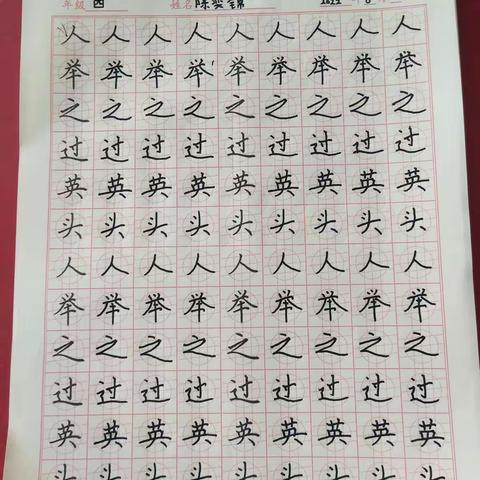 年级 四 姓名 陈奕锦 2022
人 人 人 人 人 人 人 人 人
举 举 举 举 举 举 举 举 举
之 之 之 之 之 之 之 之 之
过 过 过 过 过 过 过 过 过
英 英 英 英 英 英 英 英 英
头 头 头 头 头 头 头 头 头
人 人 人 人 人 人 人 人 人
举 举 举 举 举 举 举 举 举
之 之 之 之 之 之 之 之 之
过 过 过 过 过 过 过 过 过
英 英 英 英 英 英 英 英 英
头 头 头 头 头 头 头 头 头